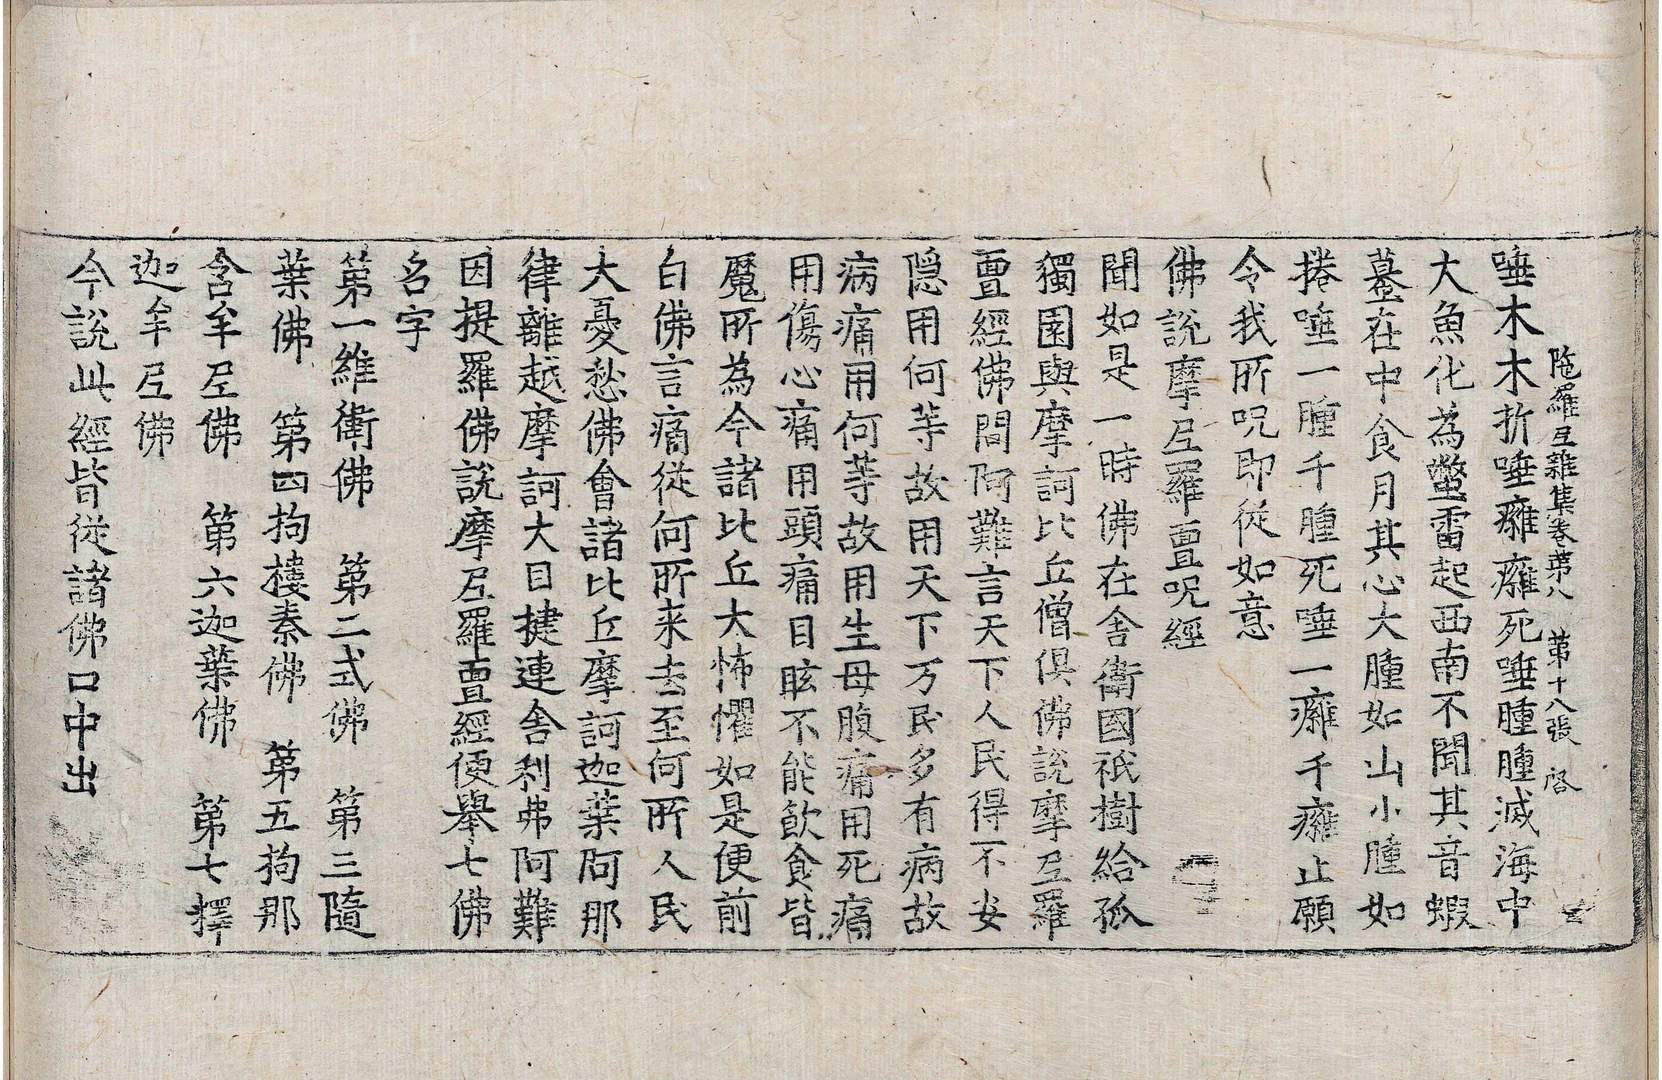 陁羅尼雜集卷第八　第十八張　啓
唾木木折唾癰癰死唾唾腫腫滅海中
大魚化為鼈雷起西南不聞其音蝦
蟇在中食月其心大腫如山小腫如
捲唾一腫千腫死唾一癰千癰止願
令我所呪即從如意
佛說摩尼羅亶呪經
聞如是一時佛在舍衛國祇樹給孤
獨園與摩訶比丘僧俱佛說摩尼羅
亶經佛問阿難言天下人民得不安
隱用何等故用天下万民多有病故
病痛用何等故用生母腹痛用死痛
用傷心痛用頭痛目眩不能飲食皆
魔所為今諸比丘大怖懼如是便前
白佛言痛從何所来去至何所人民
大憂愁佛會諸比丘摩訶迦葉阿那
律離越摩訶大目揵連舍利弗阿難
因提羅佛說摩尼羅亶經便舉七佛
名字
第一維衛佛　第二式佛　第三隨
葉佛　第四拘樓秦佛　第五拘那
含牟尼佛　第六迦葉佛　第七釋
迦牟尼佛
今說此經皆從諸佛口中出